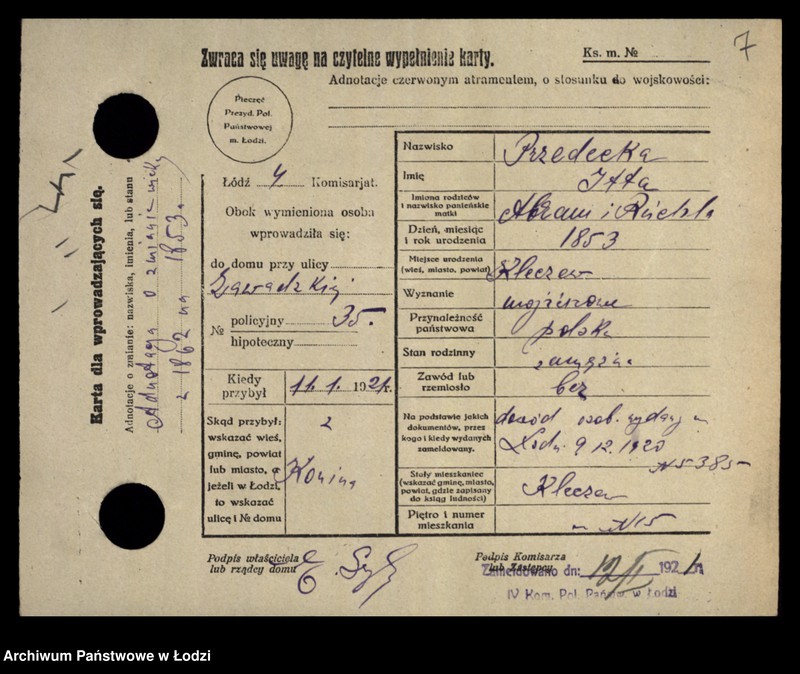 7
Zwraca się uwagę na czytelne wypełnienie karty.
Ks. m. №
Adnotacje czerwonym atramentem, o stosunku do wojskowości:
Pieczęć
Prezyd. Pol.
Państwowej
m. Łodzi.
Łódź 4 Komisarjat.
Obok wymieniona osoba
wprowadziła się:
do domu przy ulicy
Zawadzkiej
№ policyjny 35.
hipoteczny
Kiedy
przybył
11. 1. 1921 r.
Skąd przybył:
wskazać wieś,
gminę, powiat
lub miasto, a
jeżeli w Łodzi,
to wskazać
ulicę i № domu
z
Konina
Nazwisko
Przedecka
Imię
Itta
Imiona rodziców
i nazwisko panieńskie
matki
Abram i Ruchla
Dzień, miesiąc
i rok urodzenia
1853
Miejsce urodzenia
(wieś, miasto, powiat)
Kleczew
Wyznanie
mojżeszowe
Przynależność
państwowa
polska
Stan rodzinny
zamężna
Zawód lub
rzemiosło
bez
Na podstawie jakich
dokumentów, przez
kogo i kiedy wydanych
zameldowany.
dowód osob. wydany w
Łodzi 9 12. 1920
N 5385
Stały mieszkaniec
(wskazać gminę, miasto,
powiat, gdzie zapisany
do ksiąg ludności)
Kleczew
Piętro i numer
mieszkania
m N15
Podpis właściciela
lub rządcy domu
Podpis Komisarza
lub Zastępcy
Zameldowano dn: 12/I 1921 r.
IV Kom. Pol. Państw. w Łodzi
Karta dla wprowadzających się.
Adnotacje o zmianie: nazwiska, imienia, lub stanu
Adnotacja o zmianie wieku
z 1862 na 1853.
Archiwum Państwowe w Łodzi